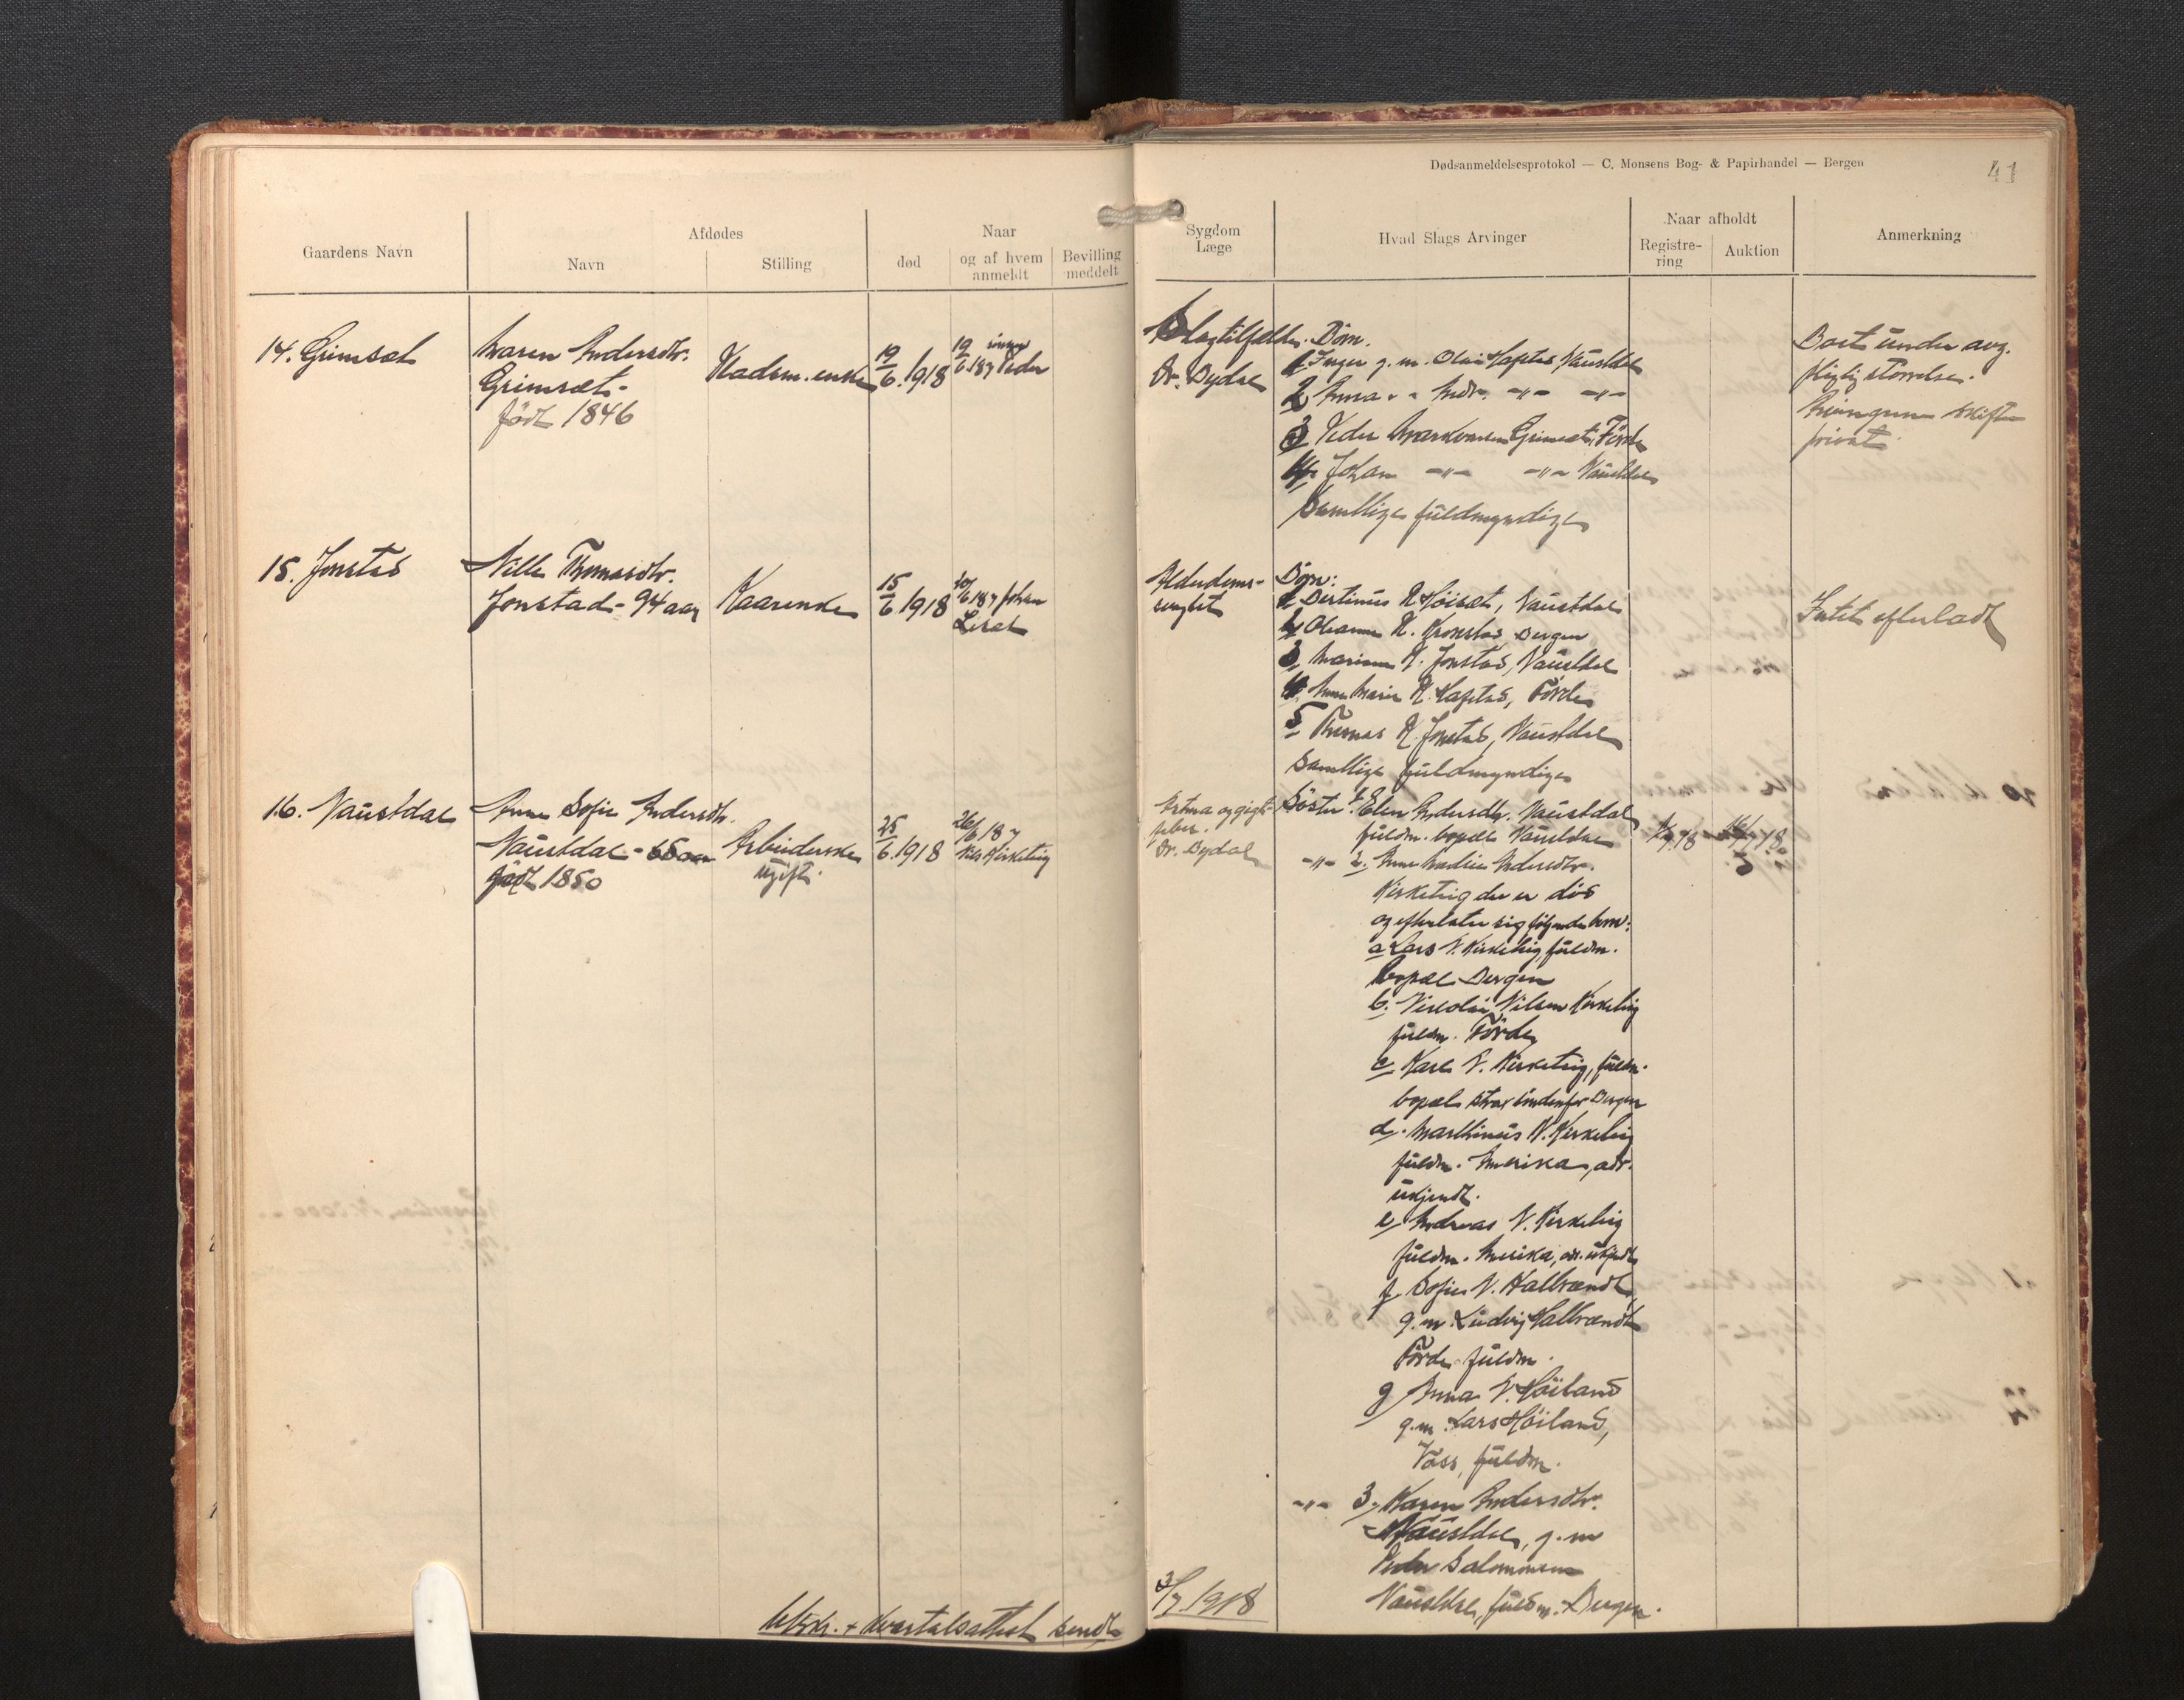 Dødsanmeldelsesprotokol — C. Monsens Bog- & Papirhandel — Bergen
41
Gaardens Navn
Afdødes
Navn
Stilling
Naar
død
og af hvem anmeldt
Bevilling meddelt
Sygdom
Læge
Hvad Slags Arvinger
Naar afholdt
Registre-
ring
Auktion
Anmerkning
14. Grimset
Maren Andersdtr.
Grimset -
født 1846
Pladsm. enke
19/6. 1918
19/6. 18 Peder
Slagtilfælde.
Dr. Dydal
Børn.
1 Inger g. m. Olai Hafstad, Naustdal
2 Anna " " Andr. -"- -"-
3 Peder Grimset, Førde
4 Johan -"- -"- Naustdal
Samtlige fuldmyndige
Boet under avg.
pligtig størrelse.
Arvingerne skifter
privat
15. Jonstad
Nille Thomasdtr.
Jonstad - 94 aar
Kaarenke
15/6 1918
6 18 Johan
Alderdoms-
svaghet
Børn:
1 Bertinus N. Høiset, Naustdal
2 Oleanna N. Kronstad, Bergen
3 Marianne N. Jonstad, Naustdal
4. Anne Marie N. Hafstad, Førde
5 Thomas N. Jonstad, Naustdal
Samtlige fuldmyndige
Intet efterladt
16. Naustdal
Anne Sofie Andersdtr.
Naustdal - 68 aar
født 1850
Arbeiderske
ugift.
25/6. 1918
26/6 18
Nils Kirketeig
Astma og gigt-
feber.
Dr. Dydal
Søster 1. Elen Andersdtr. Naustdal
fuldm. bopæl Naustdal
-"- 2. Anne Andersdtr.
Kirketeig der er død
og efterlater sig følgende barn:
a Lars N. Kirketeig, fuldm.
bopæl Bergen
b. Nicolai Nilsen Kirketeig
fuldm. Førde
c Karl N. Kirketeig, fuldm.
bopæl strax utenfor Bergen
d. Marthinus N. Kirketeig
fuldm. Amerika, adr.
ukjendt.
e Andreas N. Kirketeig
fuldm. Amerika, adr. ukjendt
f Sofie N. Halbrendt
g. m. Ludvig Halbrendt
Førde fuldm.
g Anna N. Høiland
g. m. Lars Høiland,
Voss, fuldm.
-"- 3, Karen Andersdtr.
Naustdal, g. m
Peder Salomonsen
Naustdal, fuldm. Bergen.
/7. 18
16/7 18
+ kvartalsattest sendt
3/7. 1918